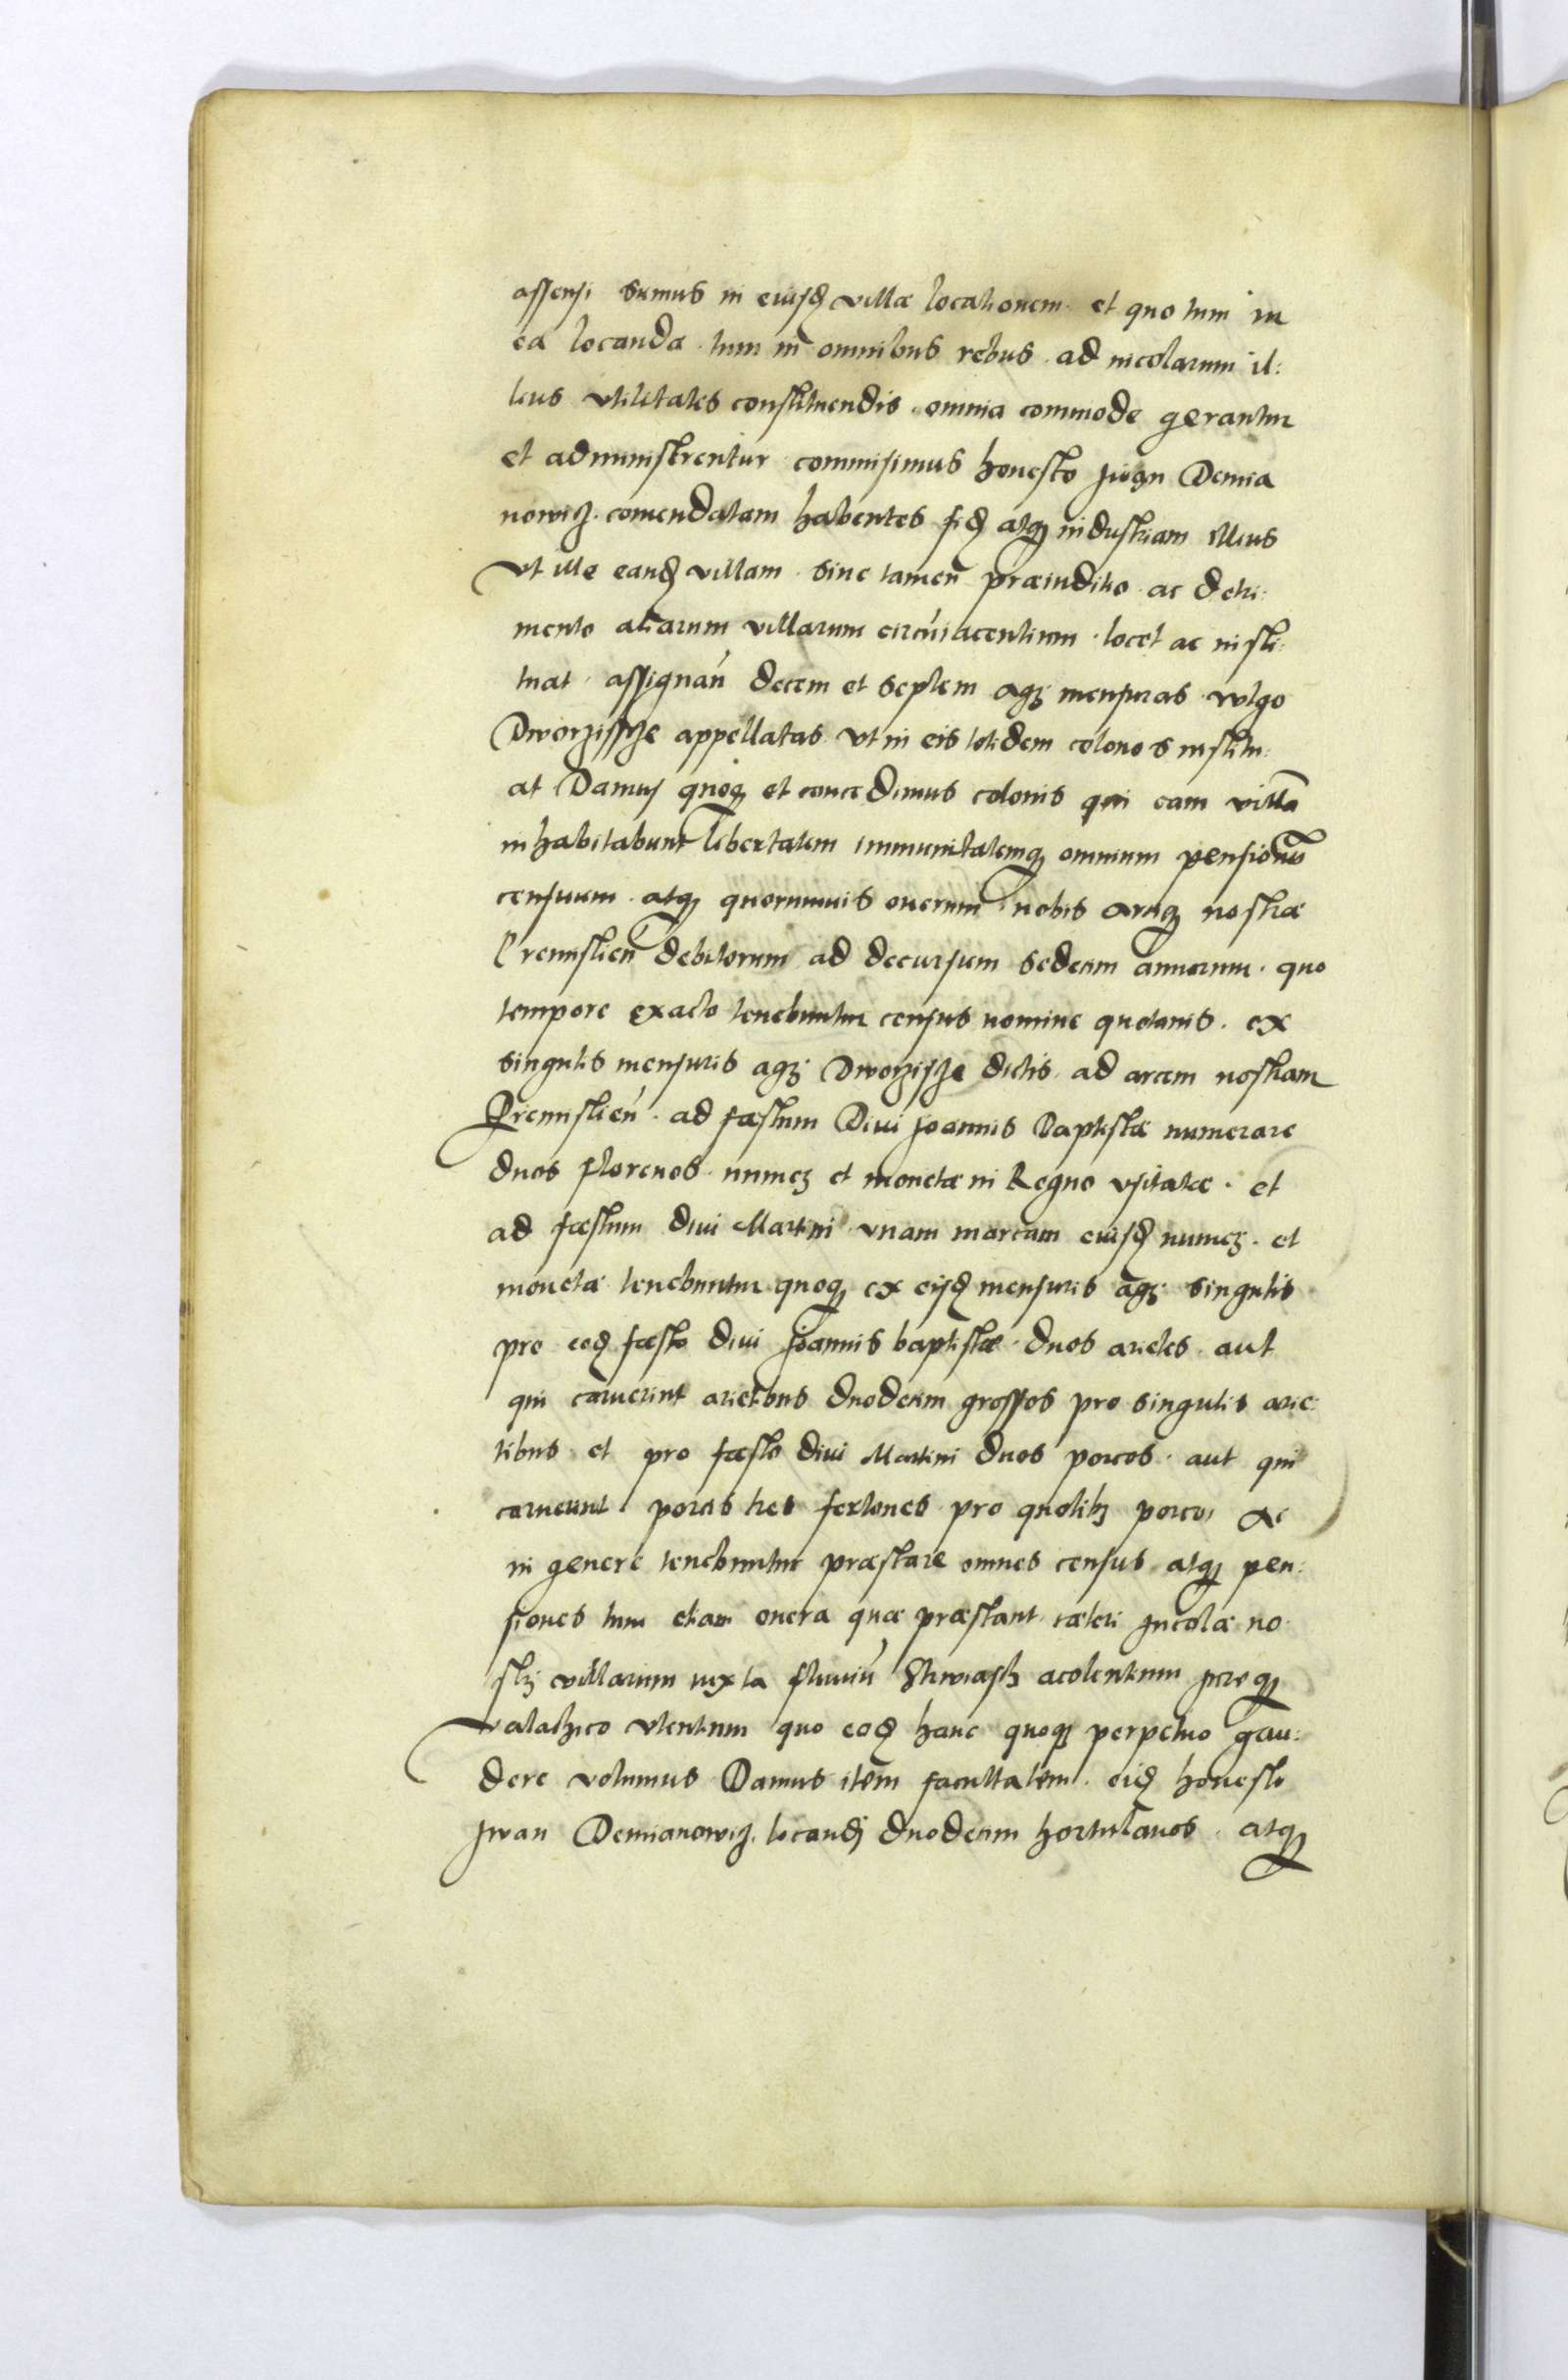 assensi sumus in eiusd villæ locationem. et quo tum in
ea locanda. tum in omnibus rebus. ad incolarum il:
lius vtilitates constituendis. omnia commode gerantur
et administrentur commisimus honesto Jwan Demia
nowicz. comendatam habentes fid atq industriam illius
vt ille eand villam. sine tamen præiuditio. ac detri:
mento aliarum villarum circuiacentium. locet ac insti:
tuat. assignan decem et septem agr mensuras. vulgo
Dworzissche appellatas. vt in eis totidem colonos institu:
at Damus quoq et concedimus colonis qui eam villa
inhabitabunt libertatem immunitatemq omnium pensionu
censuum. atq quorumuis onerum. nobis arciq nostræ
Premislien debitorum ad decursum sedecim annorum. quo
tempore exacto tenebuntur census nomine quotanis. ex
singulis mensuris agr Dworzische dictis. ad arcem nostram
Premislien. ad fæstum Diui Joannis Baptistæ numerare
duos florenos. numer et monetæ in Regno vsitatæ. et
ad fæstum diui Martini vnam marcam eiusd numer. et
monetæ tenebuntur quoq ex eisd mensuris agr singulis
pro eod fæsto diui Joannis baptistæ. duos arietes. aut
qui caruerint arietibus duodecim grossos pro singulis arie:
tibus et pro fæsto diui Martini duos porcos. aut qui
caruerint porcis tres fertones pro quolib porco, ac
in genere tenebuntur præstare omnes census atq pen:
siones tum etiam onera quæ præstant cæteri Incolæ no
str villarum iuxta fluuiu Strwiasz acolentium Jureq
valachico vtentium quo eod hanc quoq perpetuo gau:
dere volumus Damus item facultatem. eid honesto
Jwan Demianowicz. locandj duodecim hortulanos. atq